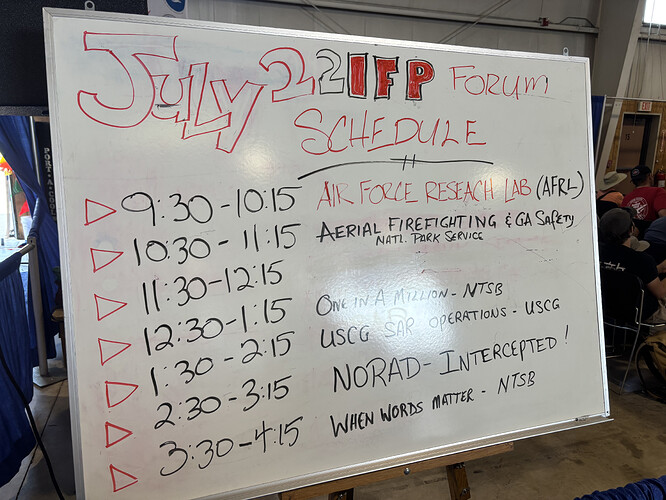 JULY 22 IFP FORUM
SCHEDULE
9:30-10:15 AIR FORCE RESEACH LAB (AFRL)
10:30-11:15 AERIAL FIREFIGHTING & GA SAFETY
NATL. PARK SERVICE
11:30-12:15
12:30-1:15 ONE IN A MILLION - NTSB
1:30-2:15 USCG SAR OPERATIONS - USCG
2:30-3:15 NORAD - INTERCEPTED!
3:30-4:15 WHEN WORDS MATTER - NTSB
PORT-A-COOL